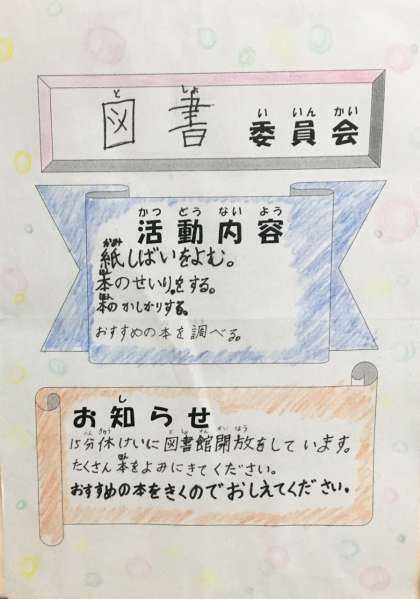 図書 委員会
活動内容
紙しばいをよむ。
本のせいりをする。
本のかしかりする。
おすすめの本を調べる。
お知らせ
15分休けいに図書館開放をしています。
たくさん本をよみにきてください。
おすすめの本をきくのでおしえてください。